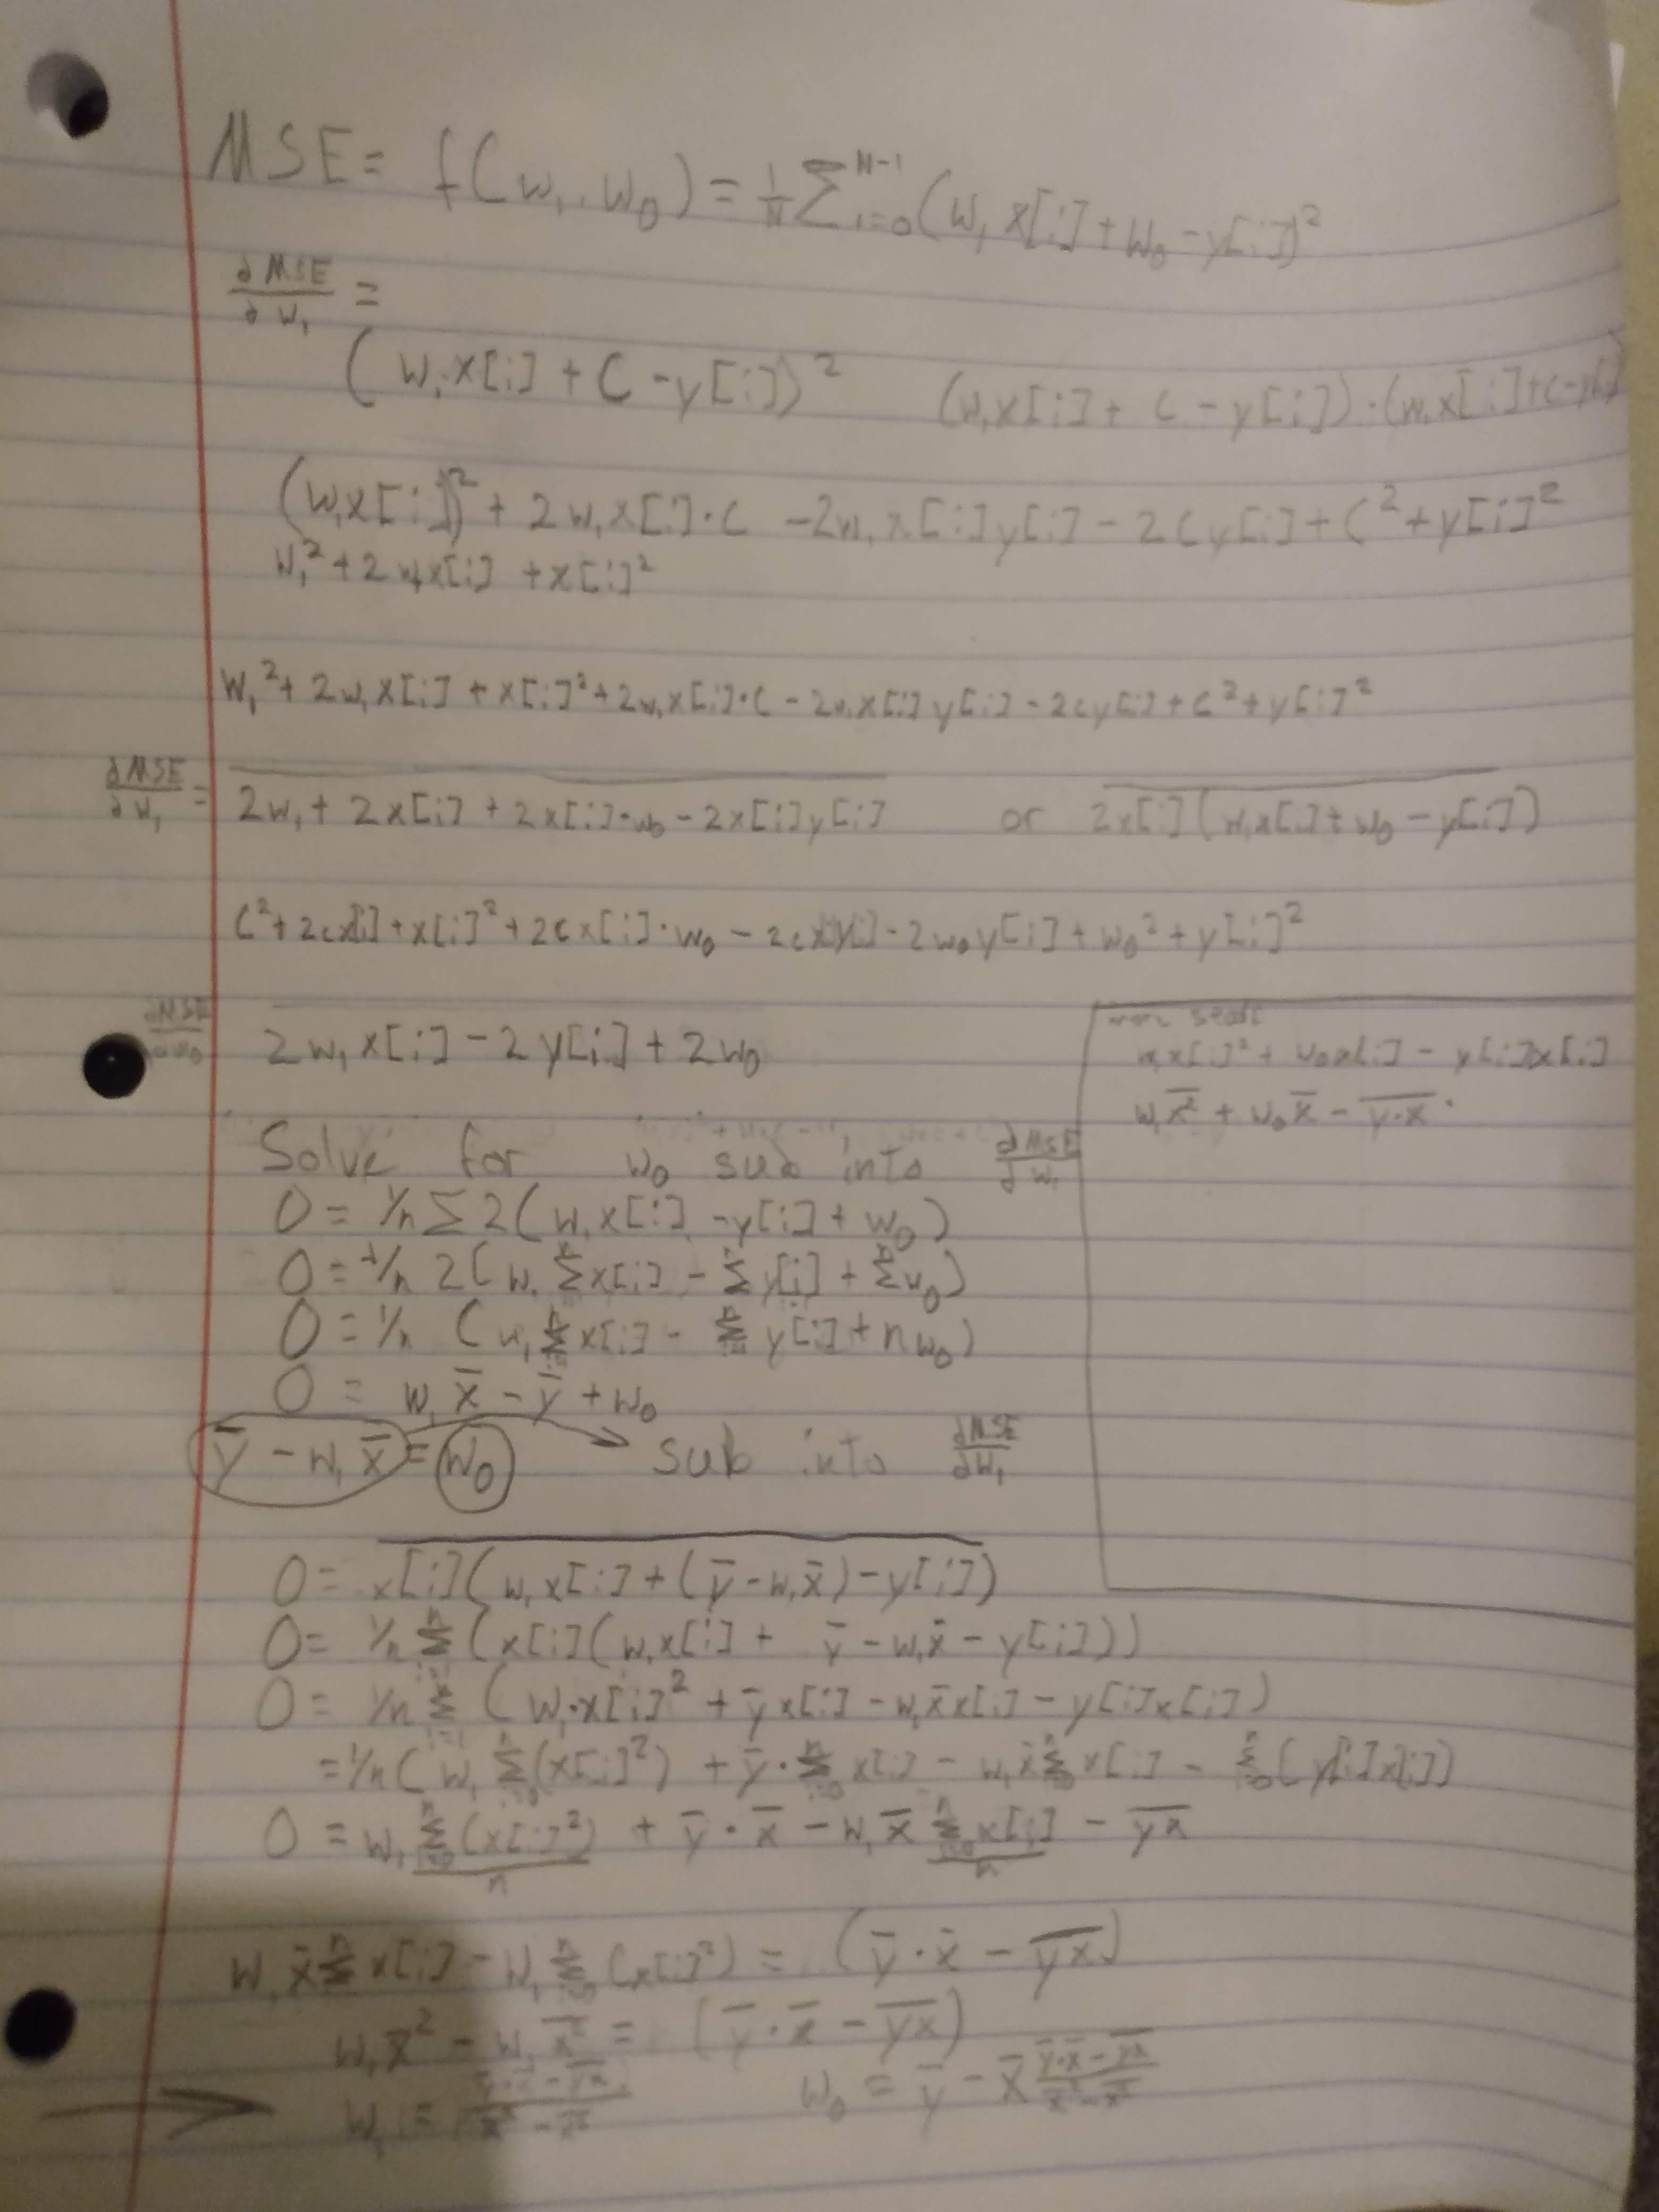 MSE = f(w₁, w₀) = 1/N Σ_{i=0}^{N-1} (w₁ x[i] + w₀ - y[i])²
∂MSE/∂w₁ =
(w₁x[i] + C - y[i])² (w₁x[i] + C - y[i])·(w₁x[i] + C - y[i])
(w₁x[i])² + 2w₁x[i]·C - 2w₁x[i]y[i] - 2Cy[i] + C² + y[i]²
w₁² + 2w₁x[i] + x[i]²
w₁² + 2w₁x[i] + x[i]² + 2w₁x[i]·C - 2w₁x[i]y[i] - 2cy[i] + C² + y[i]²
∂MSE/∂w₁ = \overline{2w₁ + 2x[i] + 2x[i]·w₀ - 2x[i]y[i]} or \overline{2x[i](w₁x[i] + w₀ - y[i])}
C² + 2cx[i] + x[i]² + 2cx[i]·w₀ - 2cx[i]y[i] - 2w₀y[i] + w₀² + y[i]²
∂MSE/∂w₀ \overline{2w₁x[i] - 2y[i] + 2w₀}
w₁x[i]² + w₀x[i] - y[i]x[i]
w₁\overline{x²} + w₀x̄ - \overline{y·x}
Solve for w₀ sub into ∂MSE/∂w₁
0 = 1/n Σ 2(w₁x[i] - y[i] + w₀)
0 = 1/n 2(w₁ Σx[i] - Σy[i] + Σw₀)
0 = 1/n (w₁ Σx[i] - Σy[i] + nw₀)
0 = w₁x̄ - ȳ + w₀
ȳ - w₁x̄ = w₀ sub into ∂MSE/∂w₁
0 = \overline{x[i](w₁x[i] + (ȳ - w₁x̄) - y[i])}
0 = 1/n Σ(x[i](w₁x[i] + ȳ - w₁x̄ - y[i]))
0 = 1/n Σ(w₁·x[i]² + ȳx[i] - w₁x̄x[i] - y[i]x[i])
= 1/n(w₁ Σ(x[i]²) + ȳ·Σx[i] - w₁x̄Σx[i] - Σ(y[i]x[i]))
0 = w₁ Σ(x[i]²)/n + ȳ·x̄ - w₁x̄ Σx[i]/n - \overline{yx}
w₁x̄Σx[i] - w₁Σ(x[i]²) = (ȳ·x̄ - \overline{yx})
w₁x̄² - w₁\overline{x²} = (ȳ·x̄ - \overline{yx})
w₁ = (ȳ·x̄ - \overline{yx})/(x̄² - \overline{x²}) w₀ = ȳ - x̄ (ȳ·x̄ - \overline{yx})/(x̄² - \overline{x²})